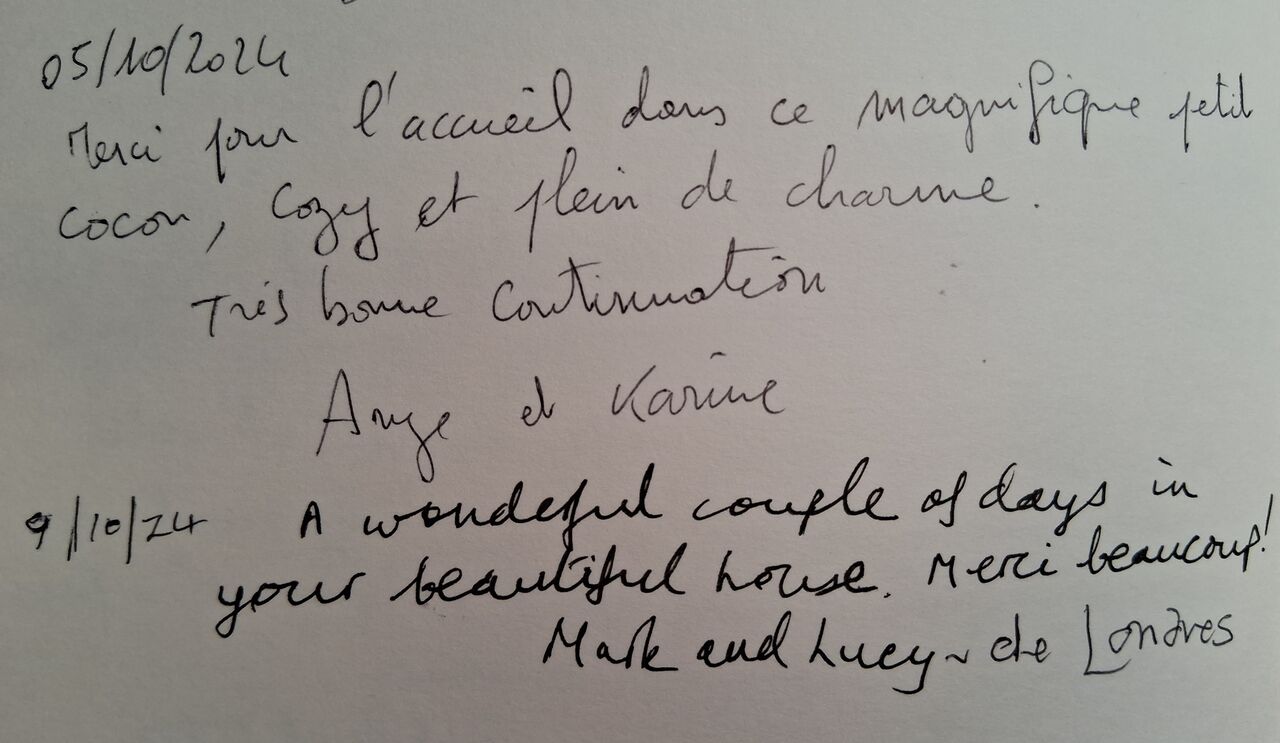 05/10/2024
Merci pour l'accueil dans ce magnifique petit
cocon, cozy et plein de charme.
Très bonne continuation
Ange et Karine
9/10/24 A wonderful couple of days in
your beautiful house. Merci beaucoup!
Mark and Lucy ~ de Londres